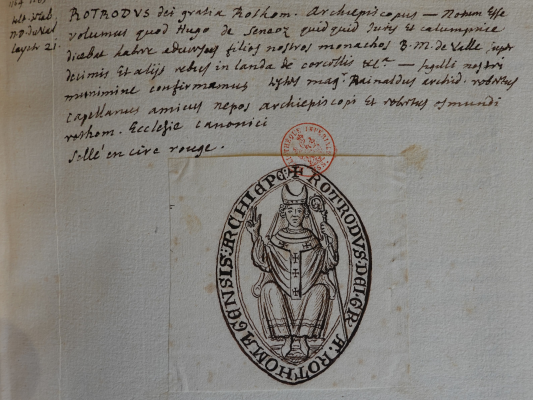 ROTRODVS dei gratia Rothom. Archiepiscopus — Notum esse
volumus quod Hugo de Senaoz quidquid Juris et calumpnie
dicebat habere adversus filios nostros monachos B. M. de Valle super
decimis et alijs rebus in landa de corcellis &c. — sigilli nostri
munimine confirmamus testes mag. Rainaldus archid. robertus
capellanus amicus nepos archiepiscopi et robertus osmundi
rothom. Ecclesie canonici
Scellé en cire rouge.
layette 21.
BIBLIOTHEQUE IMPERIALE
✠ ROTRODVS · DEI · GRA · ROTHOMAGENSIS · ARCHIEPC